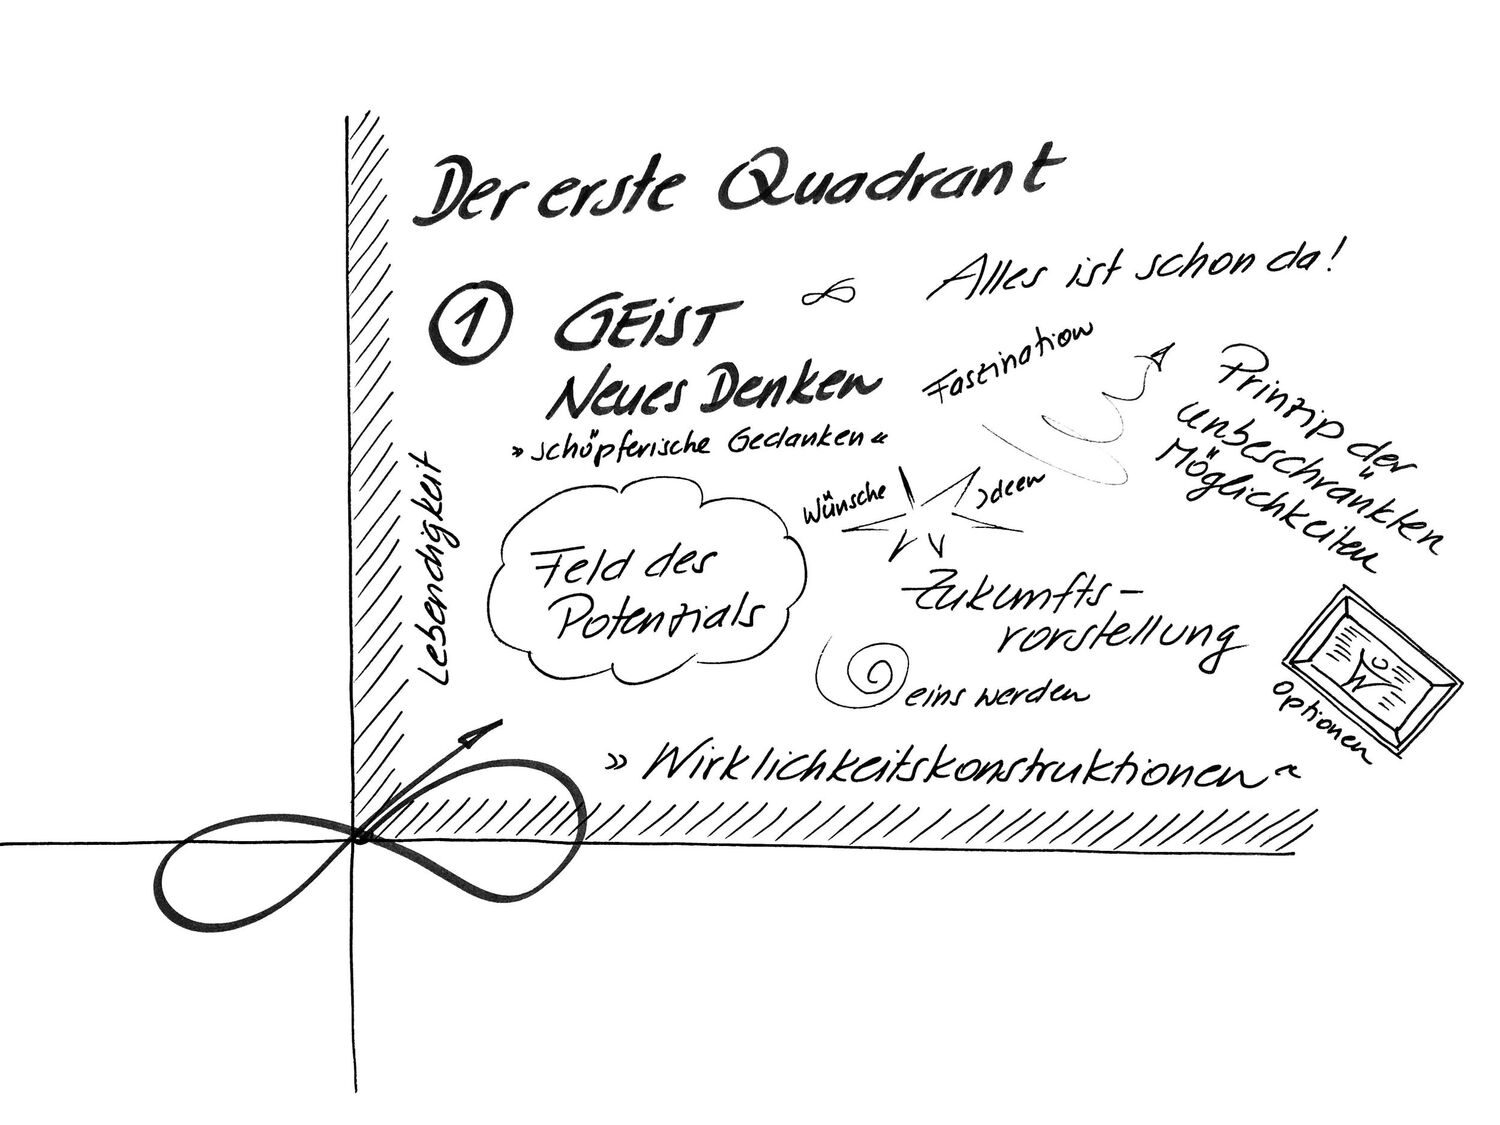 Der erste Quadrant
1 GEiST
∞ Alles ist schon da!
Neues Denken
»schöpferische Gedanken«
Faszination
Prinzip der
unbeschränkten
Möglichkeiten
Lebendigkeit
Wünsche
Ideen
Feld des
Potenzials
Zukunfts-
vorstellung
eins werden
Optionen
»Wirklichkeitskonstruktionen«